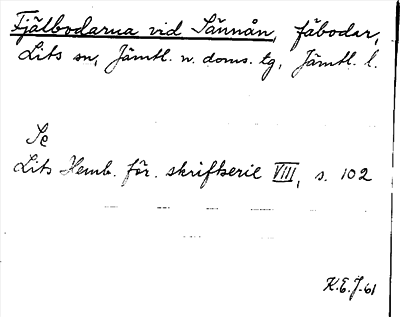 Fjälbodarna vid Sännån, fäbodar,
Lits sn, Jämtl. n. doms. tg, Jämtl. l.
Se
Lits Hemb. för. skriftserie VIII, s. 102
K.E.J-61